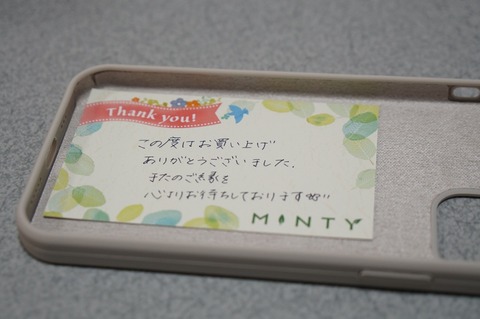 Thank you!
この度はお買い上げ
ありがとうございました。
またのご縁を
心よりお待ちしております
MINTY